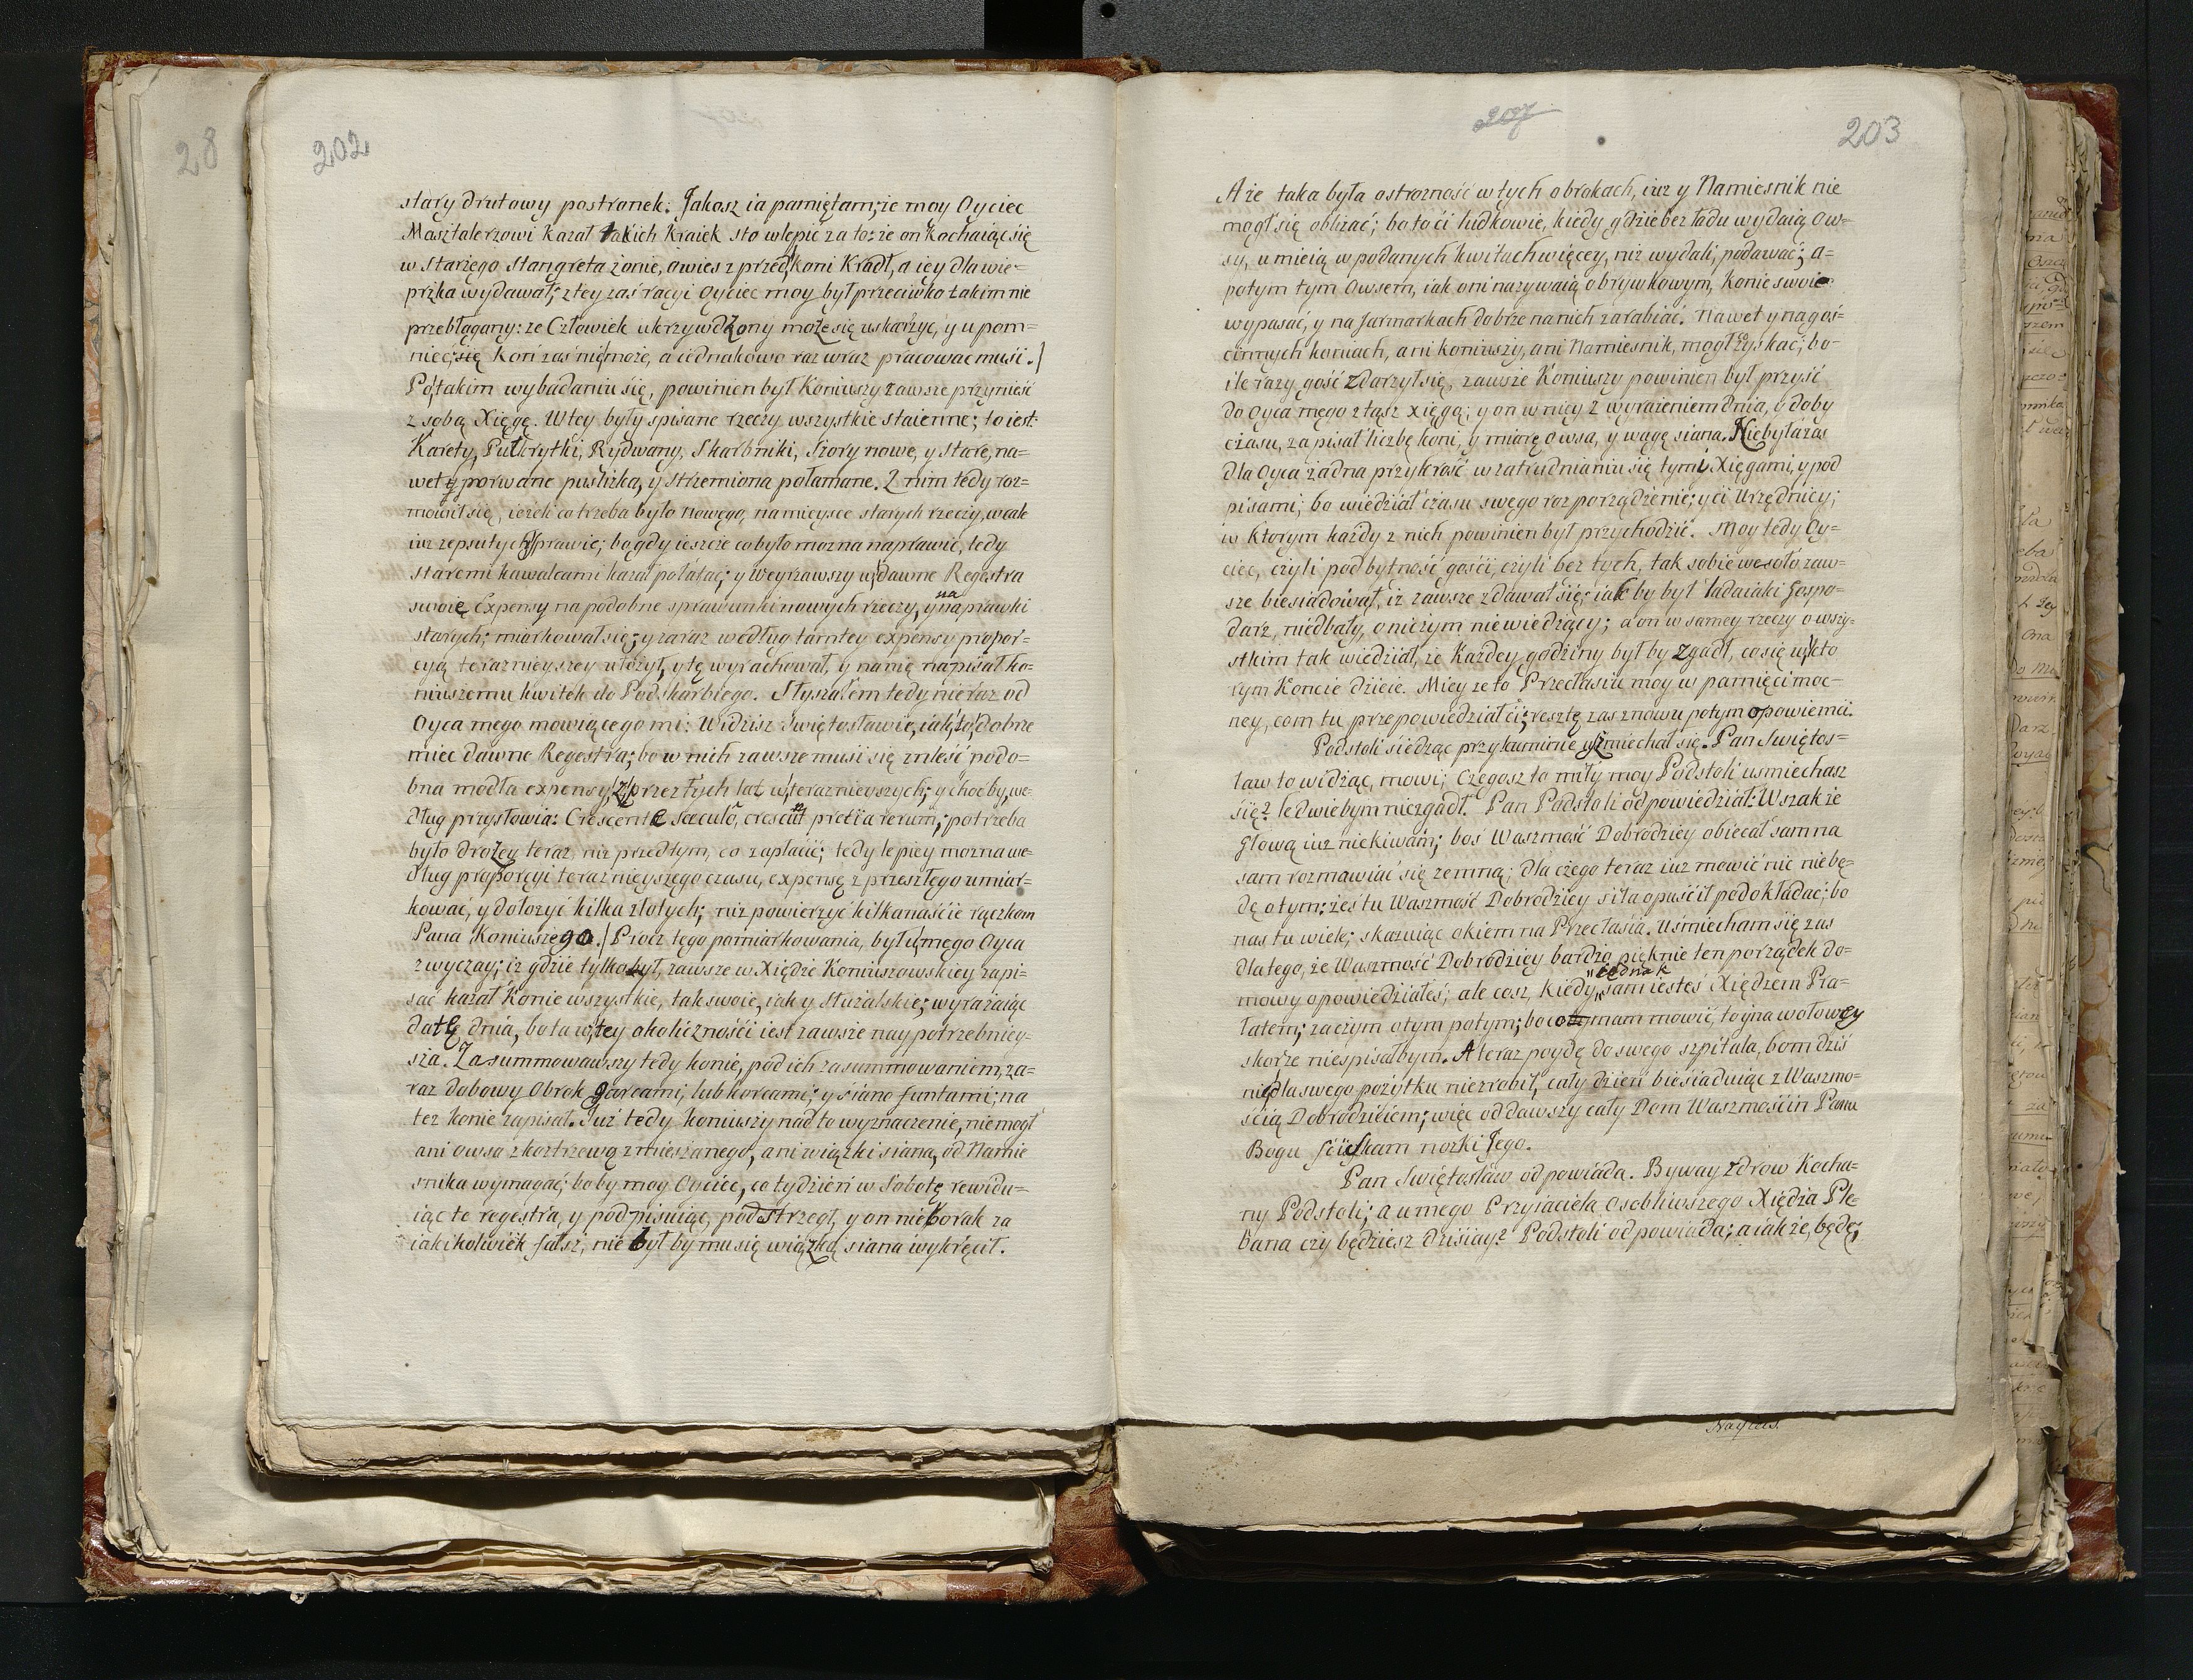 202
stary drutowy postronek. Jakosz ia pamiętam; ze moy Oyciec
Masztalerzowi Kazał takich Kraiek sto wlepic za to: ze on Kochaiąc się
w starzego Stangreta zonie, owies z przed koni Kradł, a iey dla wie-
przka wydawał; z tey zaś racyi Oyciec moy był przeciwko takim nie
przebłagany: ze Człowiek ukrzywdzony moze się uskarżyć, y upom=
niec; się Koń zaś nie może, a iednakowo raz wraz pracować musi.
Po takim wybadaniu się, powinien był Koniuszy zawsze przynieść
z sobą Xięgę. W tey były spisane rzeczy wszystkie staienne; to iest:
Karety, Pułkrytki, Rydwany, Skarbniki, Szory nowe, y stare, na=
wet y porwane puslizka, y Strzemiona połamane. Z nim tedy roz=
mowił się, ieżeli co trzeba było nowego, na mieysce starych rzeczy, wcale
iuz zepsutych sprawic; bo gdy ieszcze co było mozna naprawic, tedy
staremi kawalcami kazał połatać; y weyrzawszy w dawne Regestra
swoie Expensy na podobne sprawunki nowych rzeczy, y na naprawki
starych; miarkował się; y zaraz według tamtey expensy propor=
cyą teraznieyszey ułożył, y tę wyrachował, y na nię napisał ko=
niuszemu kwitek do Podskarbiego. Słyszałem tedy nieraz od
Oyca mego mowiącego mi: Widzisz Swiętosławie, iak to dobrze
miec dawne Regestra; bo w nich zawsze musi się znieść podo=
bna modła expensy, z przeszłych lat w teraznieyszych; y choćby, we=
dług przysłowia: Crescente sæculo, crescunt pretia rerum; potrzeba
było drozey teraz, niz przedtym, co zapłacić; tedy lepiey mozna we=
dług proporcyi teraznieyszego czasu, expensę z przeszłego umiar=
kować, y dołozyć kilka złotych; niz powierzyć kilkanaście rączkom
Pana Koniuszego. Procz tego pomiarkowania, był u mego Oyca
zwyczay; iz gdzie tylko był, zawsze w Xiędze Koniuszowskiey zapi=
sać kazał Konie wszystkie, tak swoie, iak y Sługalskie; wyrazaiąc
datę dnia, bo ta w tey okoliczności iest zawsze naypotrzebniey=
sza. Zasummowawszy tedy konie, pod ich zasummowaniem, za=
raz dobowy Obrok garcami, lub korcami; y siano funtami; na
tez konie zapisał. Juz tedy koniuszy nad to wyznaczenie, niemogł
ani owsa z kostrzewą zmieszanego, ani wiązki siana, od Namie
snika wymagać; bo by mog Oyciec, co tydzień w Sobotę rewidu=
iąc te regestra, y podpisuiąc, podstrzegł, y on nieborak za
iakikolwiek fałsz, nie był by mu się wiązką siana wykręcił.
203
A ze taka była ostrozność w tych obrokach, iuz y Namiesnik nie
mogł się oblizać; bo to ci ludkowie, kiedy gdzie bez ładu wydaią Ow=
sy, umieią w podanych kwitach więcey, niz wydali, podawać; a=
potym tym Owsem, iak oni nazywaią obrywkowym, Konie swoie
wypasać, y na Jarmarkach dobrze na nich zarabiać. Nawet y na goś=
cinnych koniach, ani koniuszy, ani Namiesnik, mogł zyskać; bo=
ile razy gość zdarzył się, zawsze Koniuszy powinien był przyść
do Oyca mego z tąsz xięgą; y on w niey z wyrazeniem dnia, y doby
czasu, zapisał liczbę koni, y miarę owsa, y wagę siana. Niebyła zas
dla Oyca żadna przykrość w zatrudnianiu się tymi Xięgami, y pod
pisami; bo wiedział czasu swego rozporządzenie; y ci Urzędnicy;
w ktorym kazdy z nich powinien był przychodzić. Moy tedy Oy=
ciec, czyli pod bytność gości, czyli bez tych, tak sobie wesoło zaw=
sze biesiadował, iz zawsze zdawał się; iak by był ladaiaki Gospo=
darz, niedbały, o niczym niewiedzący; a on w samey rzeczy o wszy=
stkim tak wiedział, ze Kazdey godziny był by zgadł, co się w kto
rym Koncie dzieie. Miey ze to Przecłasiu moy w pamięci moc=
ney, com tu przepowiedział ci; resztę zas znowu potym opowiem ci.
Podstoli siedząc przy kominie uśmiechał się. Pan Swiętos=
ław to widząc, mowi; Czegosz to miły moy Podstoli usmiechasz
się? ledwie bym niezgadł. Pan Podstoli odpowiedział: Wszak ze
Głową iuz niekiwam; boś Waszmość Dobrodziey obiecał sam na
sam rozmawiać się zemną; dla czego teraz iuz mowić nic niebę=
dę o tym: ześ tu Waszmość Dobrodziey siła opuścił podokładać; bo
nas tu wiele; skazuiąc okiem na Przecłasia. Uśmiecham się zas
dlatego, ze Waszmość Dobrodziey bardzo pięknie ten porządek do=
mowy opowiedziałeś; ale cosz, kiedy iednak sam iesteś Xiędzem Pra=
łatem; zaczym o tym potym; bo co mam mowić, to y na wołowey
skorze niespisał bym. A teraz poydę do swego szpitala, bom dziś
nic dla swego pożytku niezrobił, cały dzień biesiaduiąc z Waszmo=
ścią Dobrodzieiem; więc oddawszy cały Dom Waszmościn Panu
Bogu ściskam nozki Jego.
Pan Swiętosław odpowiada. Byway zdrow Kocha=
ny Podstoli; a u mego Przyiaciela Osobliwszego Xiędza Ple=
bana czy będziesz dzisiay? Podstoli odpowiada; a iakże, będę;
28